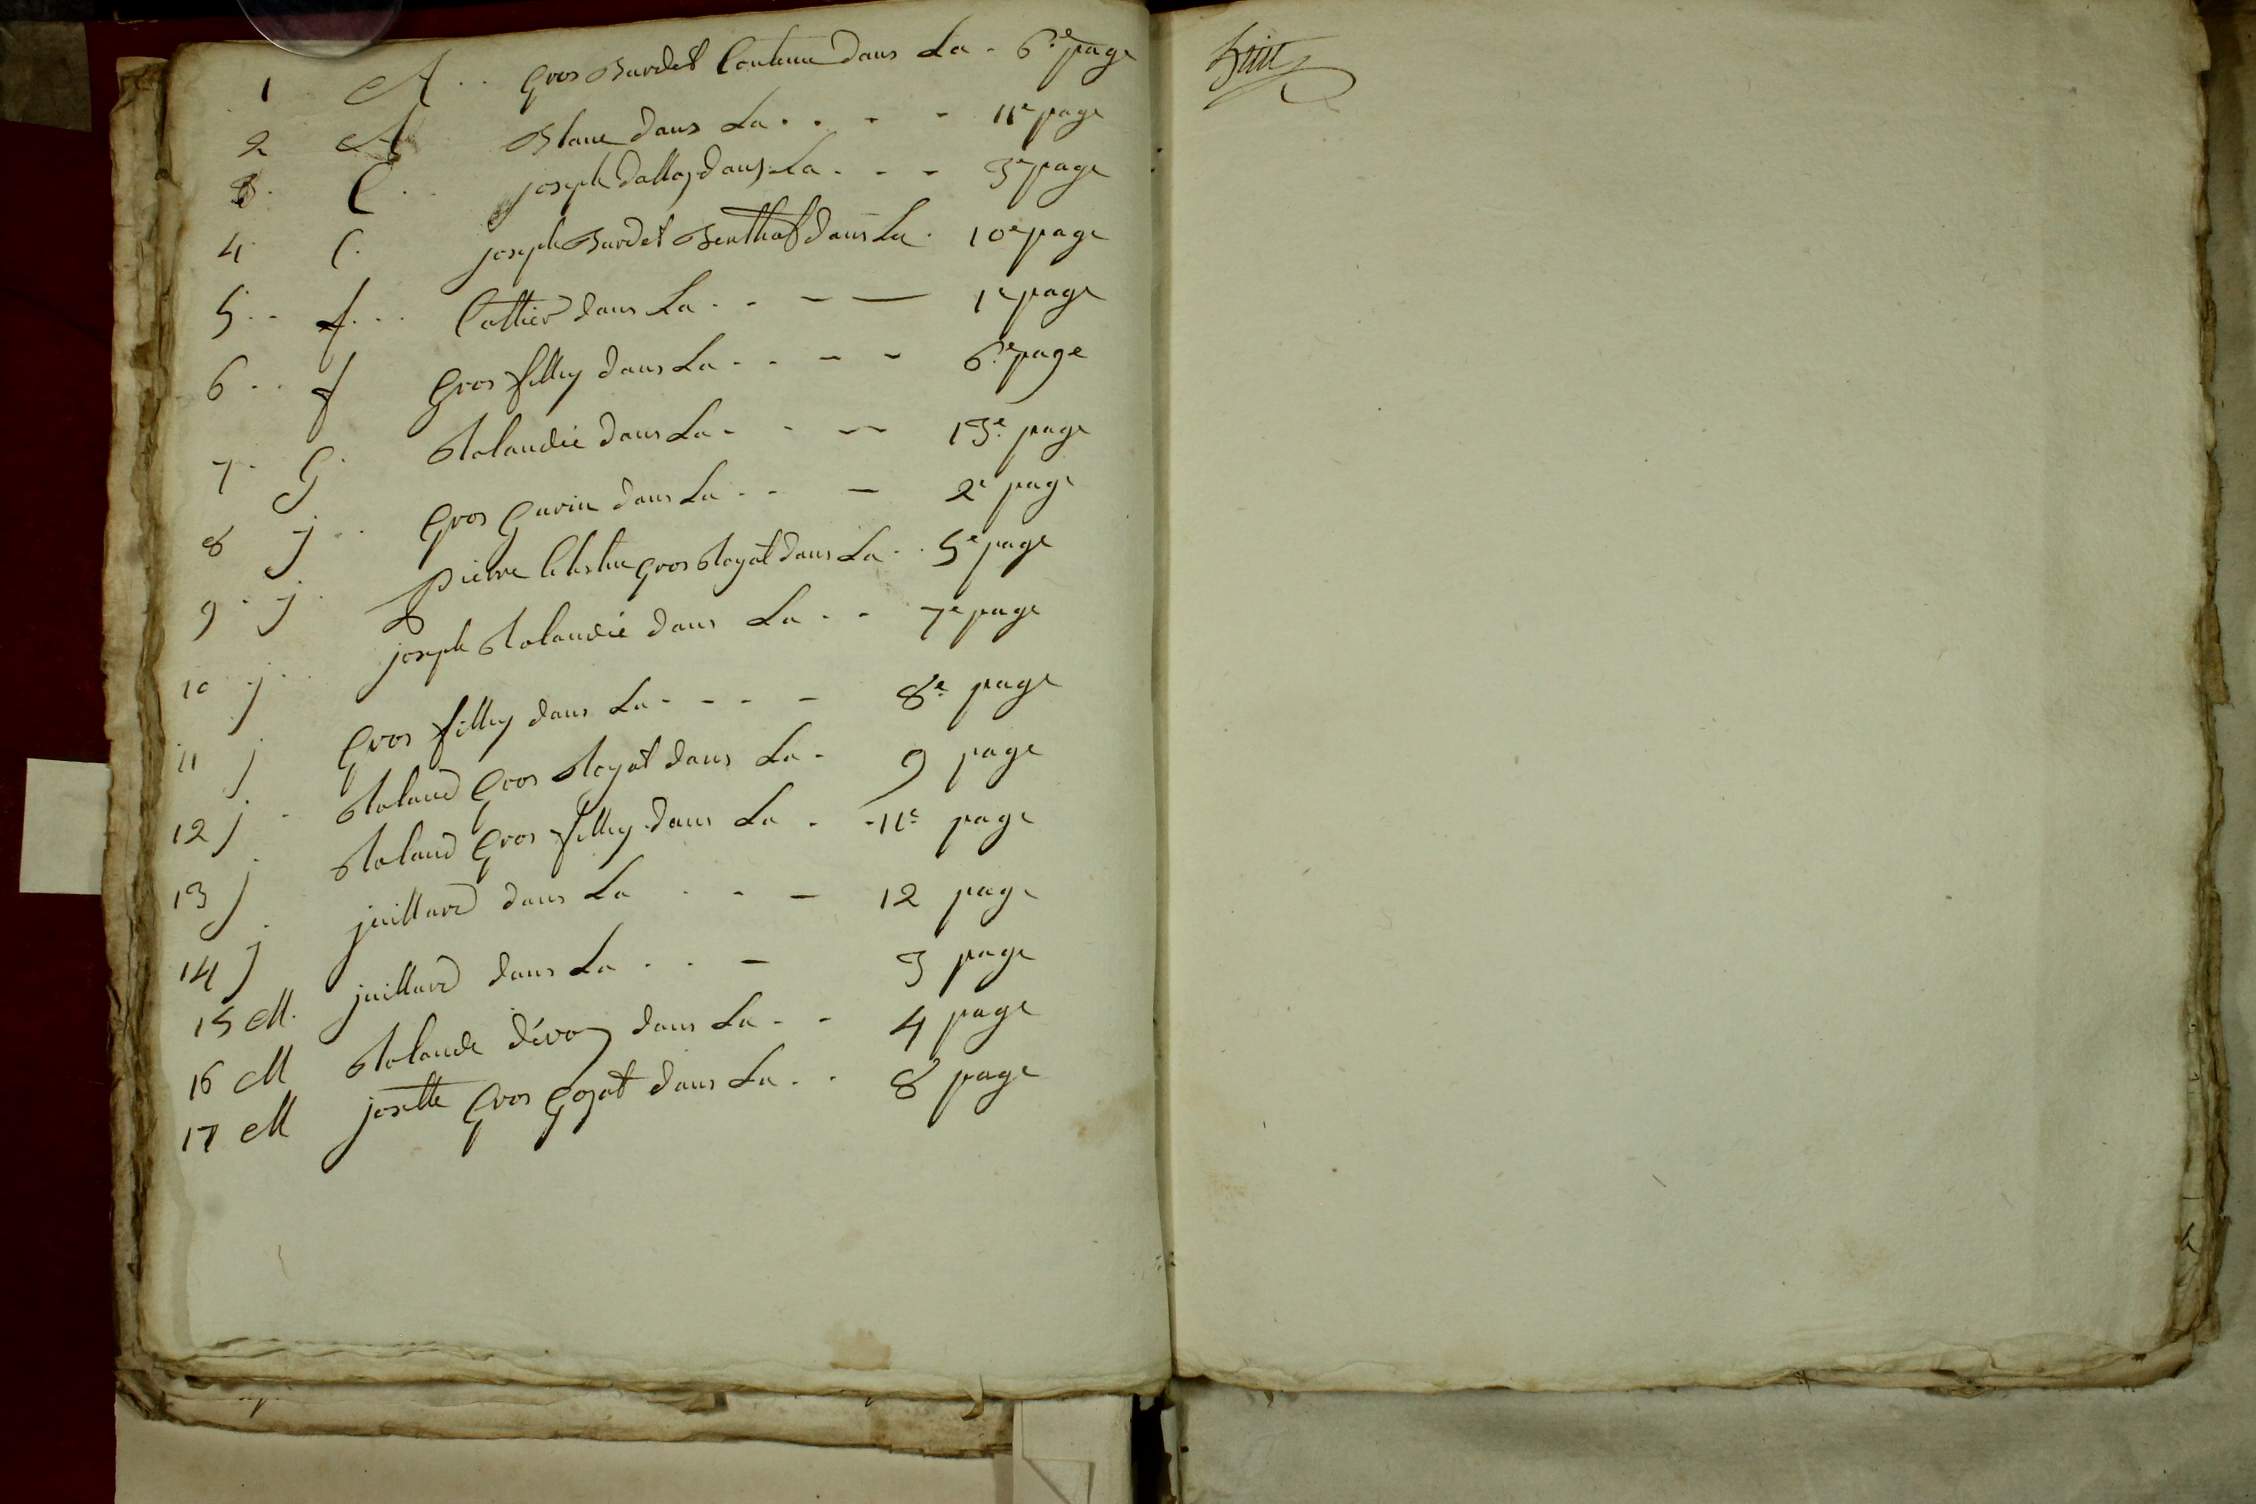 1 A . . gros Burdet Contenu dans La - 6.e page
2 A Blanc dans La . . - - 11e page
3. C . . joseph dalloz dans La - - - 3e page
4 C. joseph Burdet Benthod dans La . 10e page
5 . . f . . . Cattier dans La . - - — 1e page
6 . . f gros filley dans La - - - - 6.e page
7 . G . Rolandie dans La - - - 13.e page
8 j . . gros gurin dans La . - — 2e page
9 . j . pierre Celestin gros Royat dans La . . 5e page
10 . j . . joseph Rolandie dans La - - 7e page
11 j gros filley dans La - - - - 8.e page
12 j - Roland gros Royat dans La - 9 page
13 j . Roland gros filley dans La . - 11e page
14 j juillard dans La . - — 12 page
15 M. juillard dans La . . — 3 page
16 M Rolande dévoz dans La - - 4 page
17 M josette gros gozat dans La . . 8 page
huit